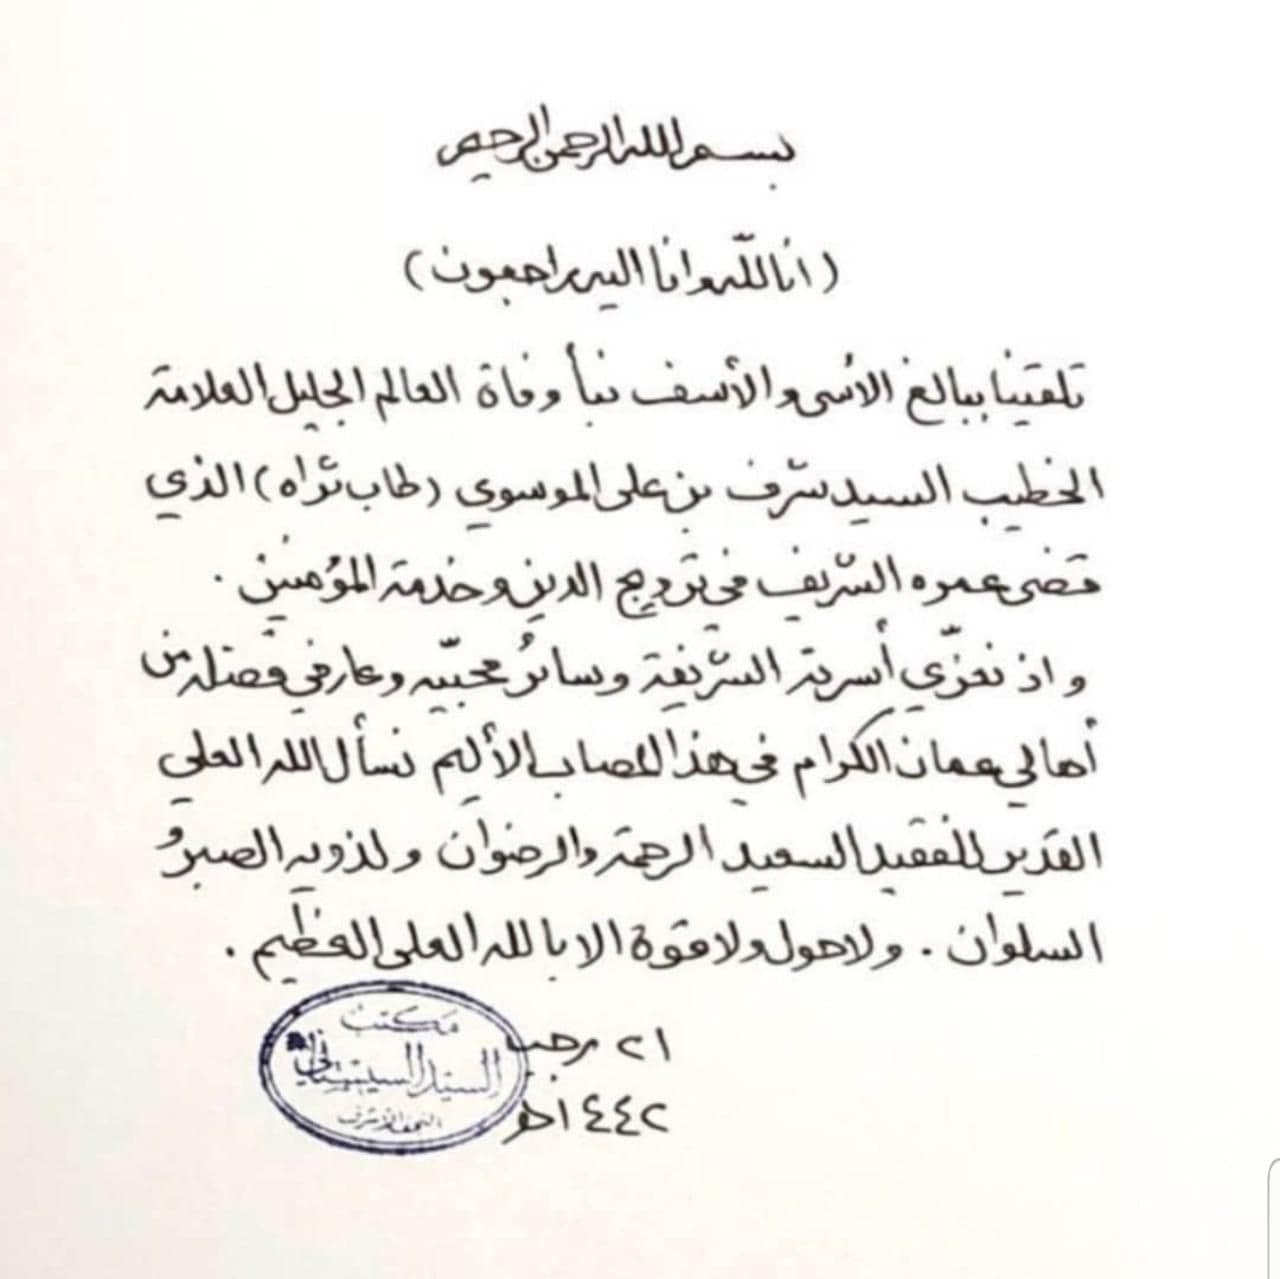 بسم الله الرحمن الرحيم
(انا لله وانا اليه راجعون)
تلقينا ببالغ الأسى والأسف نبأ وفاة العالم الجليل العلامة
الخطيب السيد شرف بن علي الموسوي (طاب ثراه) الذي
قضى عمره الشريف في ترويج الدين وخدمة المؤمنين .
واذ نعزّي أسرته الشريفة وسائر محبّيه وعارفي فضله من
أهالي عمان الكرام في هذا المصاب الأليم نسأل الله العلي
القدير للفقيد السعيد الرحمة والرضوان ولذويه الصبر و
السلوان . ولا حول ولا قوة الا بالله العلي العظيم .
٢١ رجب
١٤٤٢هـ
مكتب
السيد السيستاني
النجف الأشرف